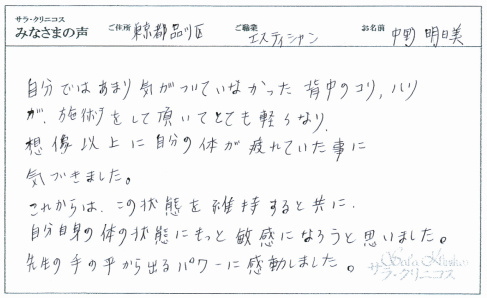 サラ・クリニコス
みなさまの声 ご住所 東京都品川区 ご職業 エスティシャン お名前 中野 明日美
自分ではあまり気がづいていなかった 背中のコリ,ハリ
が、施術をして頂いてとても軽くなり、
想像以上に自分の体が疲れていた事に
気づきました。
これからは、この状態を維持すると共に、
自分自身の体の状態にもっと敏感になろうと思いました。
先生の手の平から出るパワーに感動しました。
サラ・クリニコス